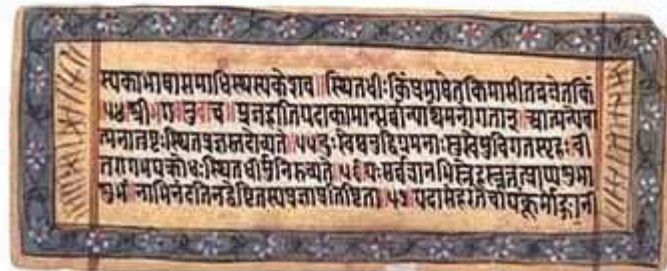 स्यकाभाषासमाधिस्थस्यकेशव॥स्थितधीःकिंप्रभाषेतकिमासीतव्रजेतकिं
५४श्रीभगवानुवाच॥प्रजहातियदाकामान्सर्वान्पार्थमनोगतान्॥आत्मन्येवा
त्मनातुष्टःस्थितप्रज्ञस्तदोच्यते५५दुःखेष्वनुद्विग्नमनाःसुखेषुविगतस्पृहःवी
तरागभयक्रोधःस्थितधीर्मुनिरुच्यते५६यःसर्वत्रानभिस्नेहस्तत्तत्प्राप्यशुभा
शुभंनाभिनंदतिनद्वेष्टितस्यप्रज्ञाप्रतिष्ठिता५७यदासंहरतेचायंकूर्मोङ्गानी